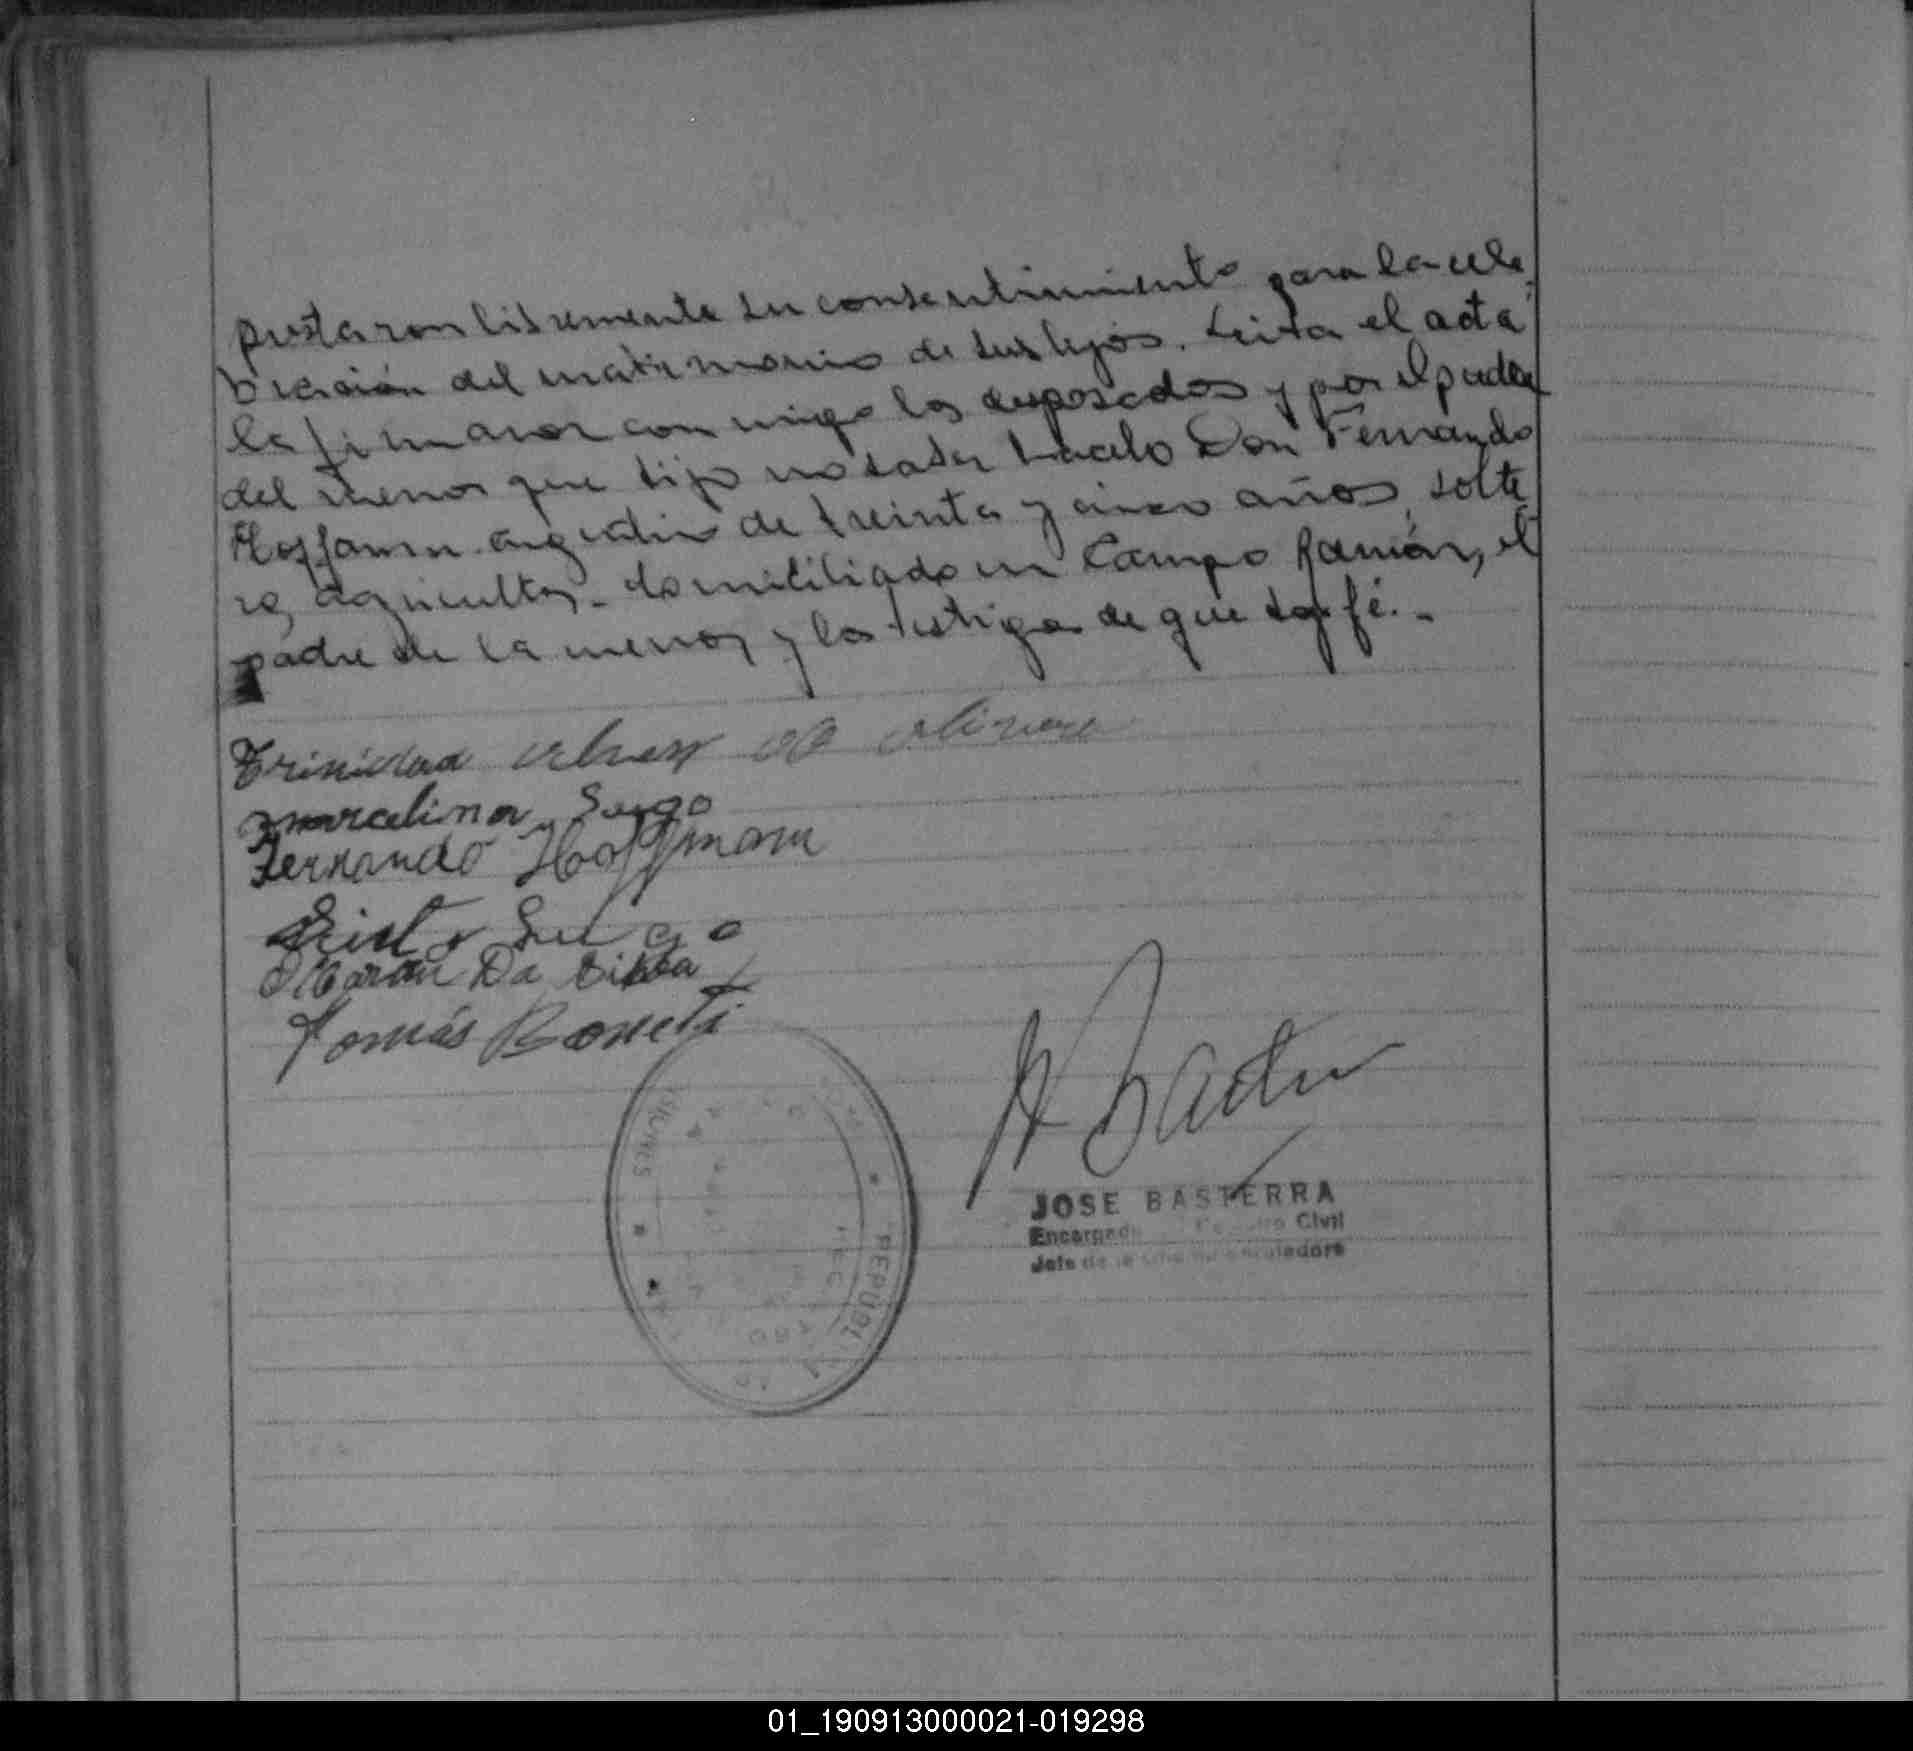 prestaron libremente su consentimiento para la cele
bración del matrimonio de sus hijos. Leida el acta
la firmaron con migo los desposados y por el padre
del menor que dijo no saber hacerlo Don Fernando
Hoffamn argentino de treinta y cinco años, solte
ro, agricultor, domiciliado en Campo Ramón, el
padre de la menor y los testigos de que doy fé.-
Trinidad de olivera
marcelina Lugo
Fernando Hoffmann
Sixto Lugo
Da Silva
Tomás Boneti
JOSE BASTERRA
Encargado Civil
Jefe de la
REPUBL
MISIONES